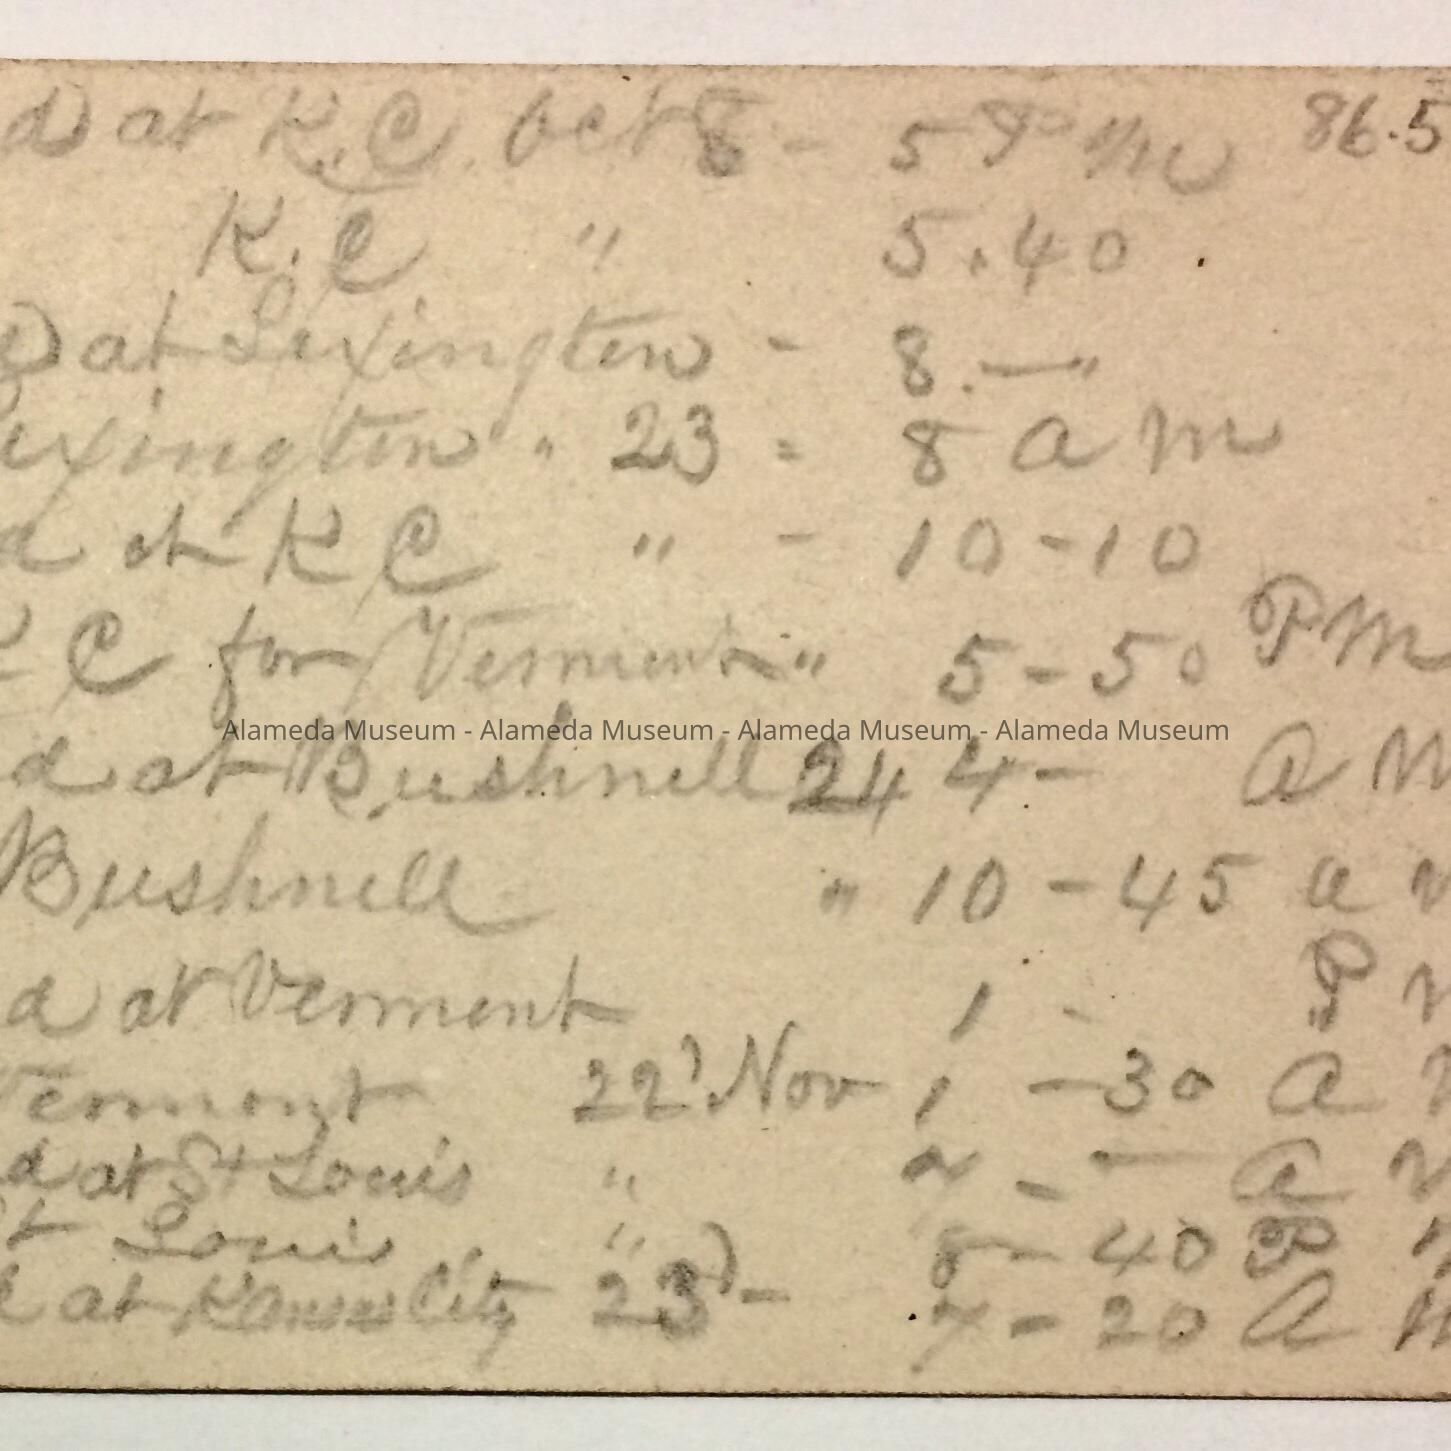 d at K.C. Oct 8 - 5 P m 86.5
K. C " 5.40
d at Lexington - 8.—"
exington " 23 = 8 a m
d at K C " - 10-10
C for Vermont " 5-50 PM
d at Bushnell 24 4- a M
Bushnell " 10-45 a
d at Vermont 1 - P
Vermont 22' Nov 1 -30 a
d at St Louis " 7 - — a
t Louis " 8-40 P
d at Kansas City 23) - 7-20 a
Alameda Museum - Alameda Museum - Alameda Museum - Alameda Museum